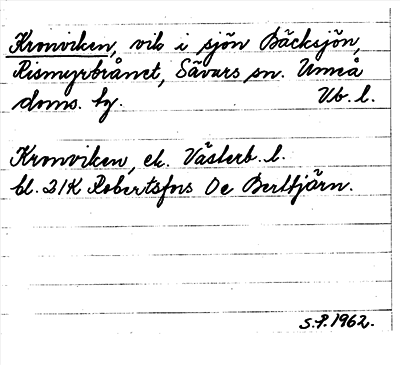 Kronviken, vik i sjön Bäcksjön,
Rismyrbrånet, Sävars sn. Umeå
doms. hg. Vb. l.
Kronviken, ek. Västerb. l.
bl. 21K Robertsfors Oe Berttjärn.
S.P. 1962.